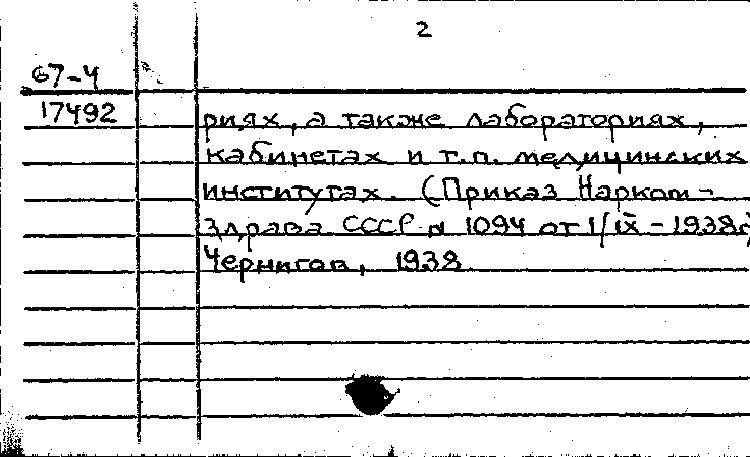 2
67-4
17492
риях, а также лабораториях,
кабинетах и т.п. медицинских
институтах. (Приказ Нарком-
здрава СССР N 1094 от 1/IX-1938г)
Чернигов, 1938